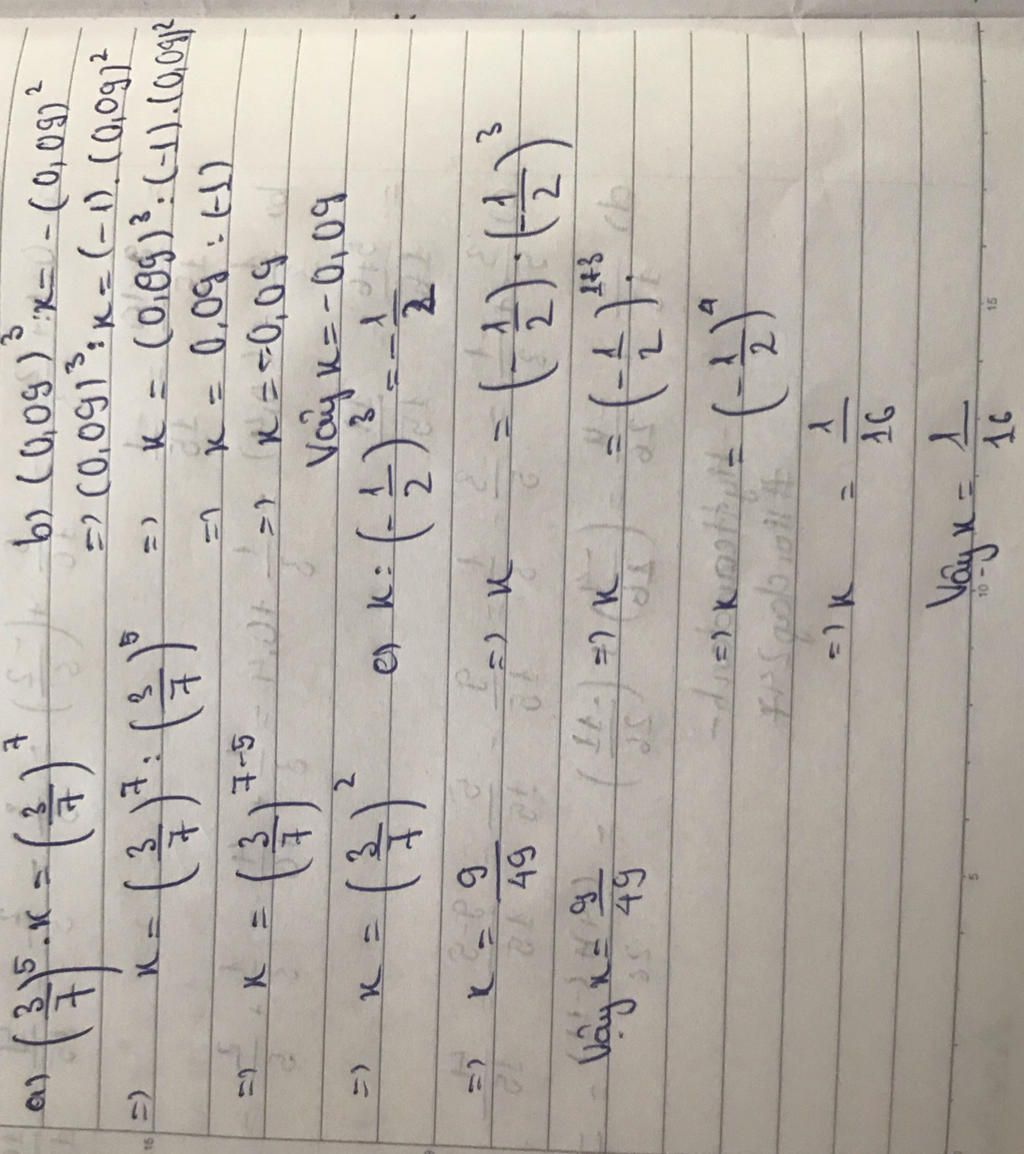 a) (3/7)^5 . x = (3/7)^7
=> x = (3/7)^7 : (3/7)^5
=> x = (3/7)^{7-5}
=> x = (3/7)^2
=> x = 9/49
Vậy x = 9/49
b) (0,09)^3 : x = - (0,09)^2
=> (0,09)^3 : x = (-1) . (0,09)^2
=> x = (0,09)^3 : (-1) . (0,09)^2
=> x = 0,09 : (-1)
=> x = -0,09
Vậy x = -0,09
c) x : (-1/2)^3 = -1/2
=> x = (-1/2) . (-1/2)^3
=> x = (-1/2)^{1+3} .
=> x = (-1/2)^4
=> x = 1/16
Vậy x = 1/16
15
5
10
15